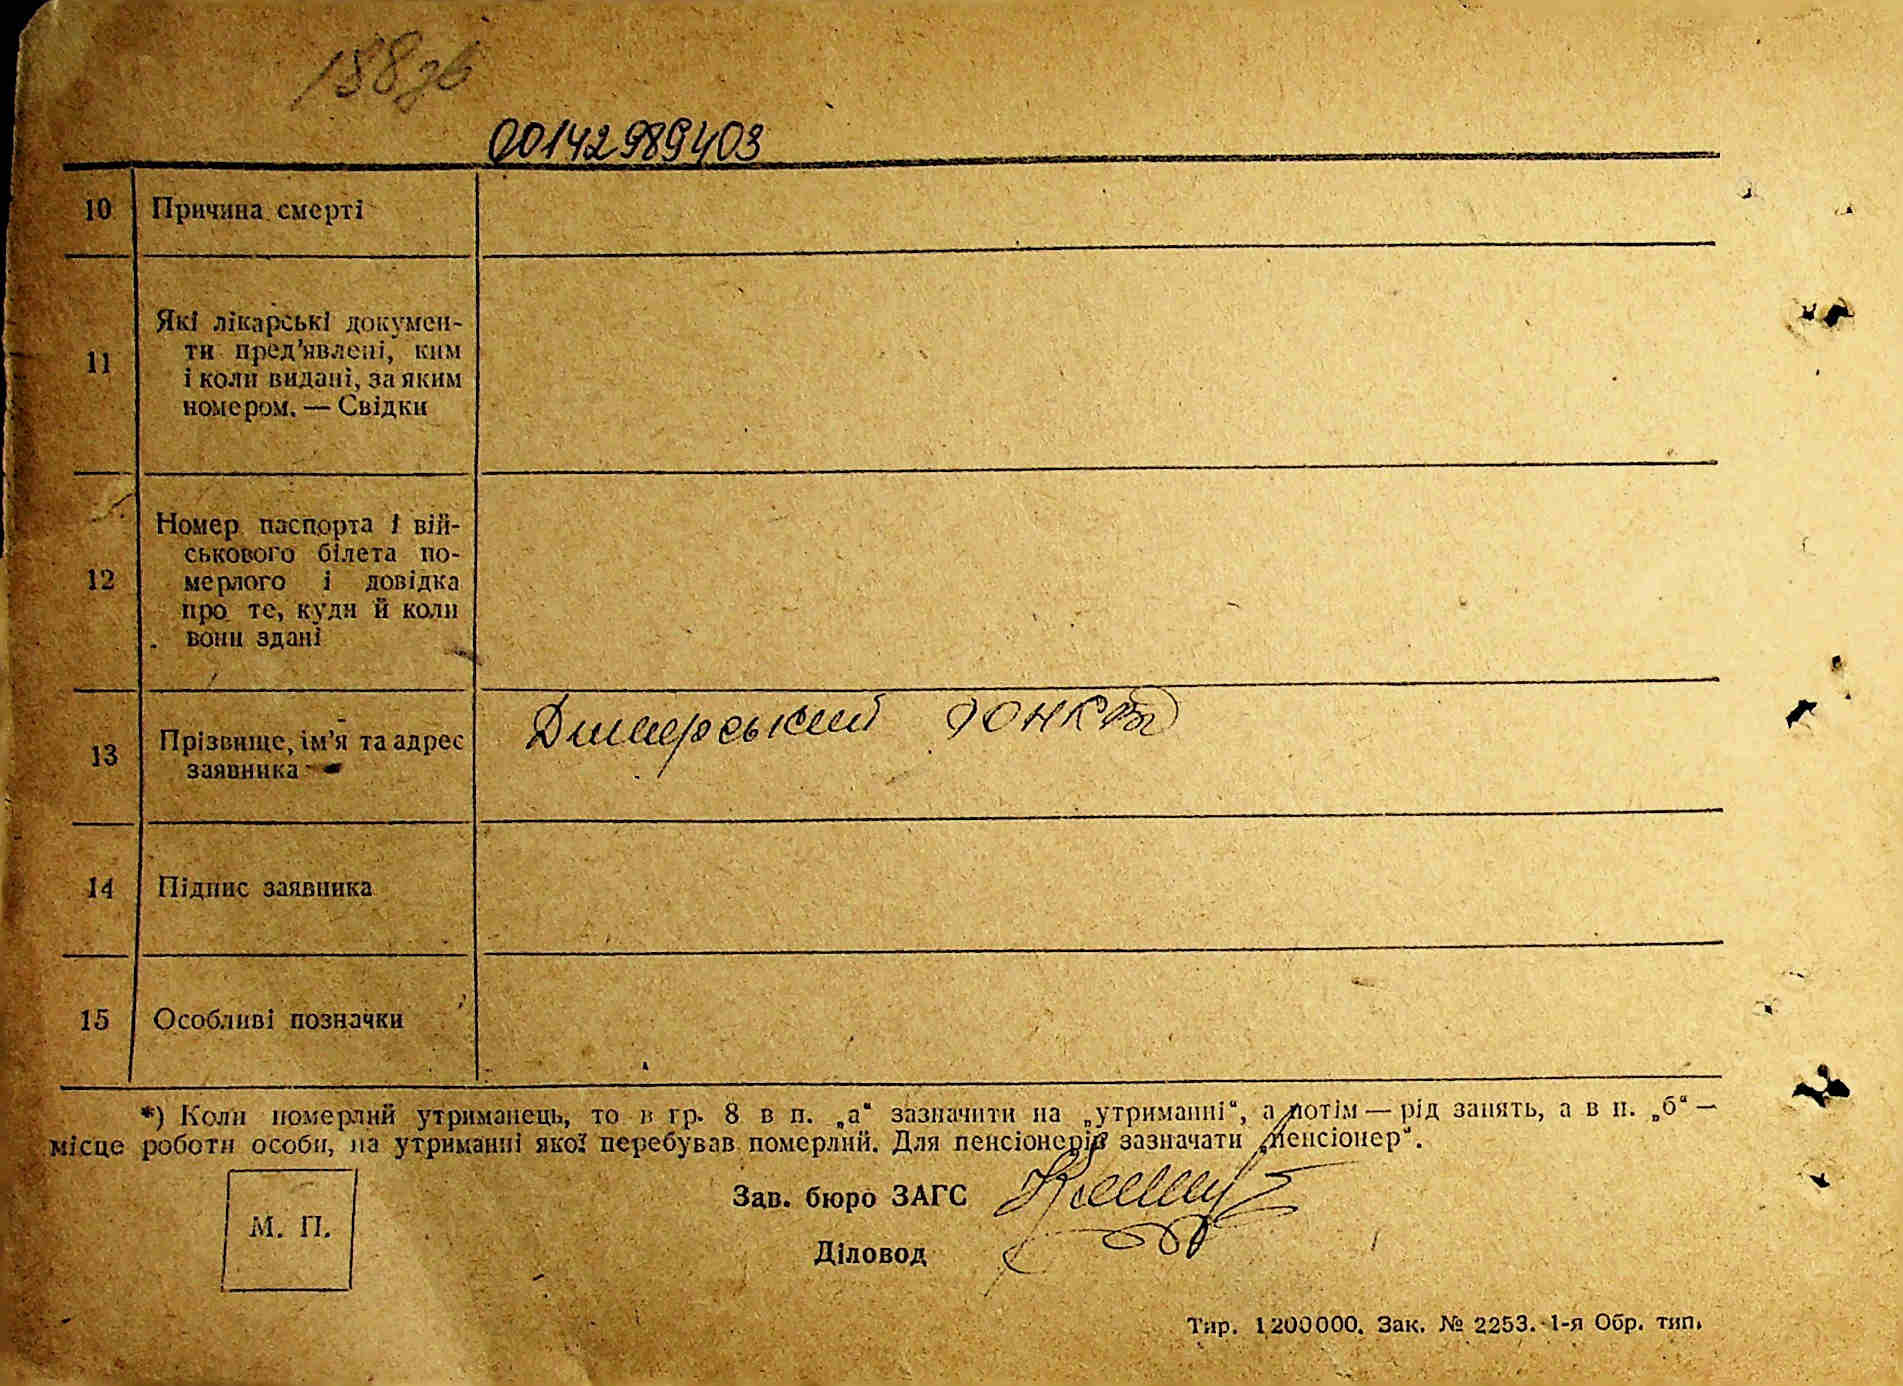 188зв
00142989403
10 Причина смерті
11 Які лікарські докумен-
ти пред'явлені, ким
і коли видані, за яким
номером. — Свідки
12 Номер паспорта і вій-
ськового білета по-
мерлого і довідка
про те, куди й коли
вони здані
13 Прізвище, ім'я та адрес
заявника
Димерський ЮНКВД
14 Підпис заявника
15 Особливі позначки
*) Коли померлий утриманець, то в гр. 8 в п. „а“ зазначити на „утриманні“, а потім — рід занять, а в п. „б“ —
місце роботи особи, на утриманні якої перебував померлий. Для пенсіонерів зазначати „пенсіонер“.
Зав. бюро ЗАГС
М. П.
Діловод
Тир. 1200000. Зак. № 2253. 1-я Обр. тип.